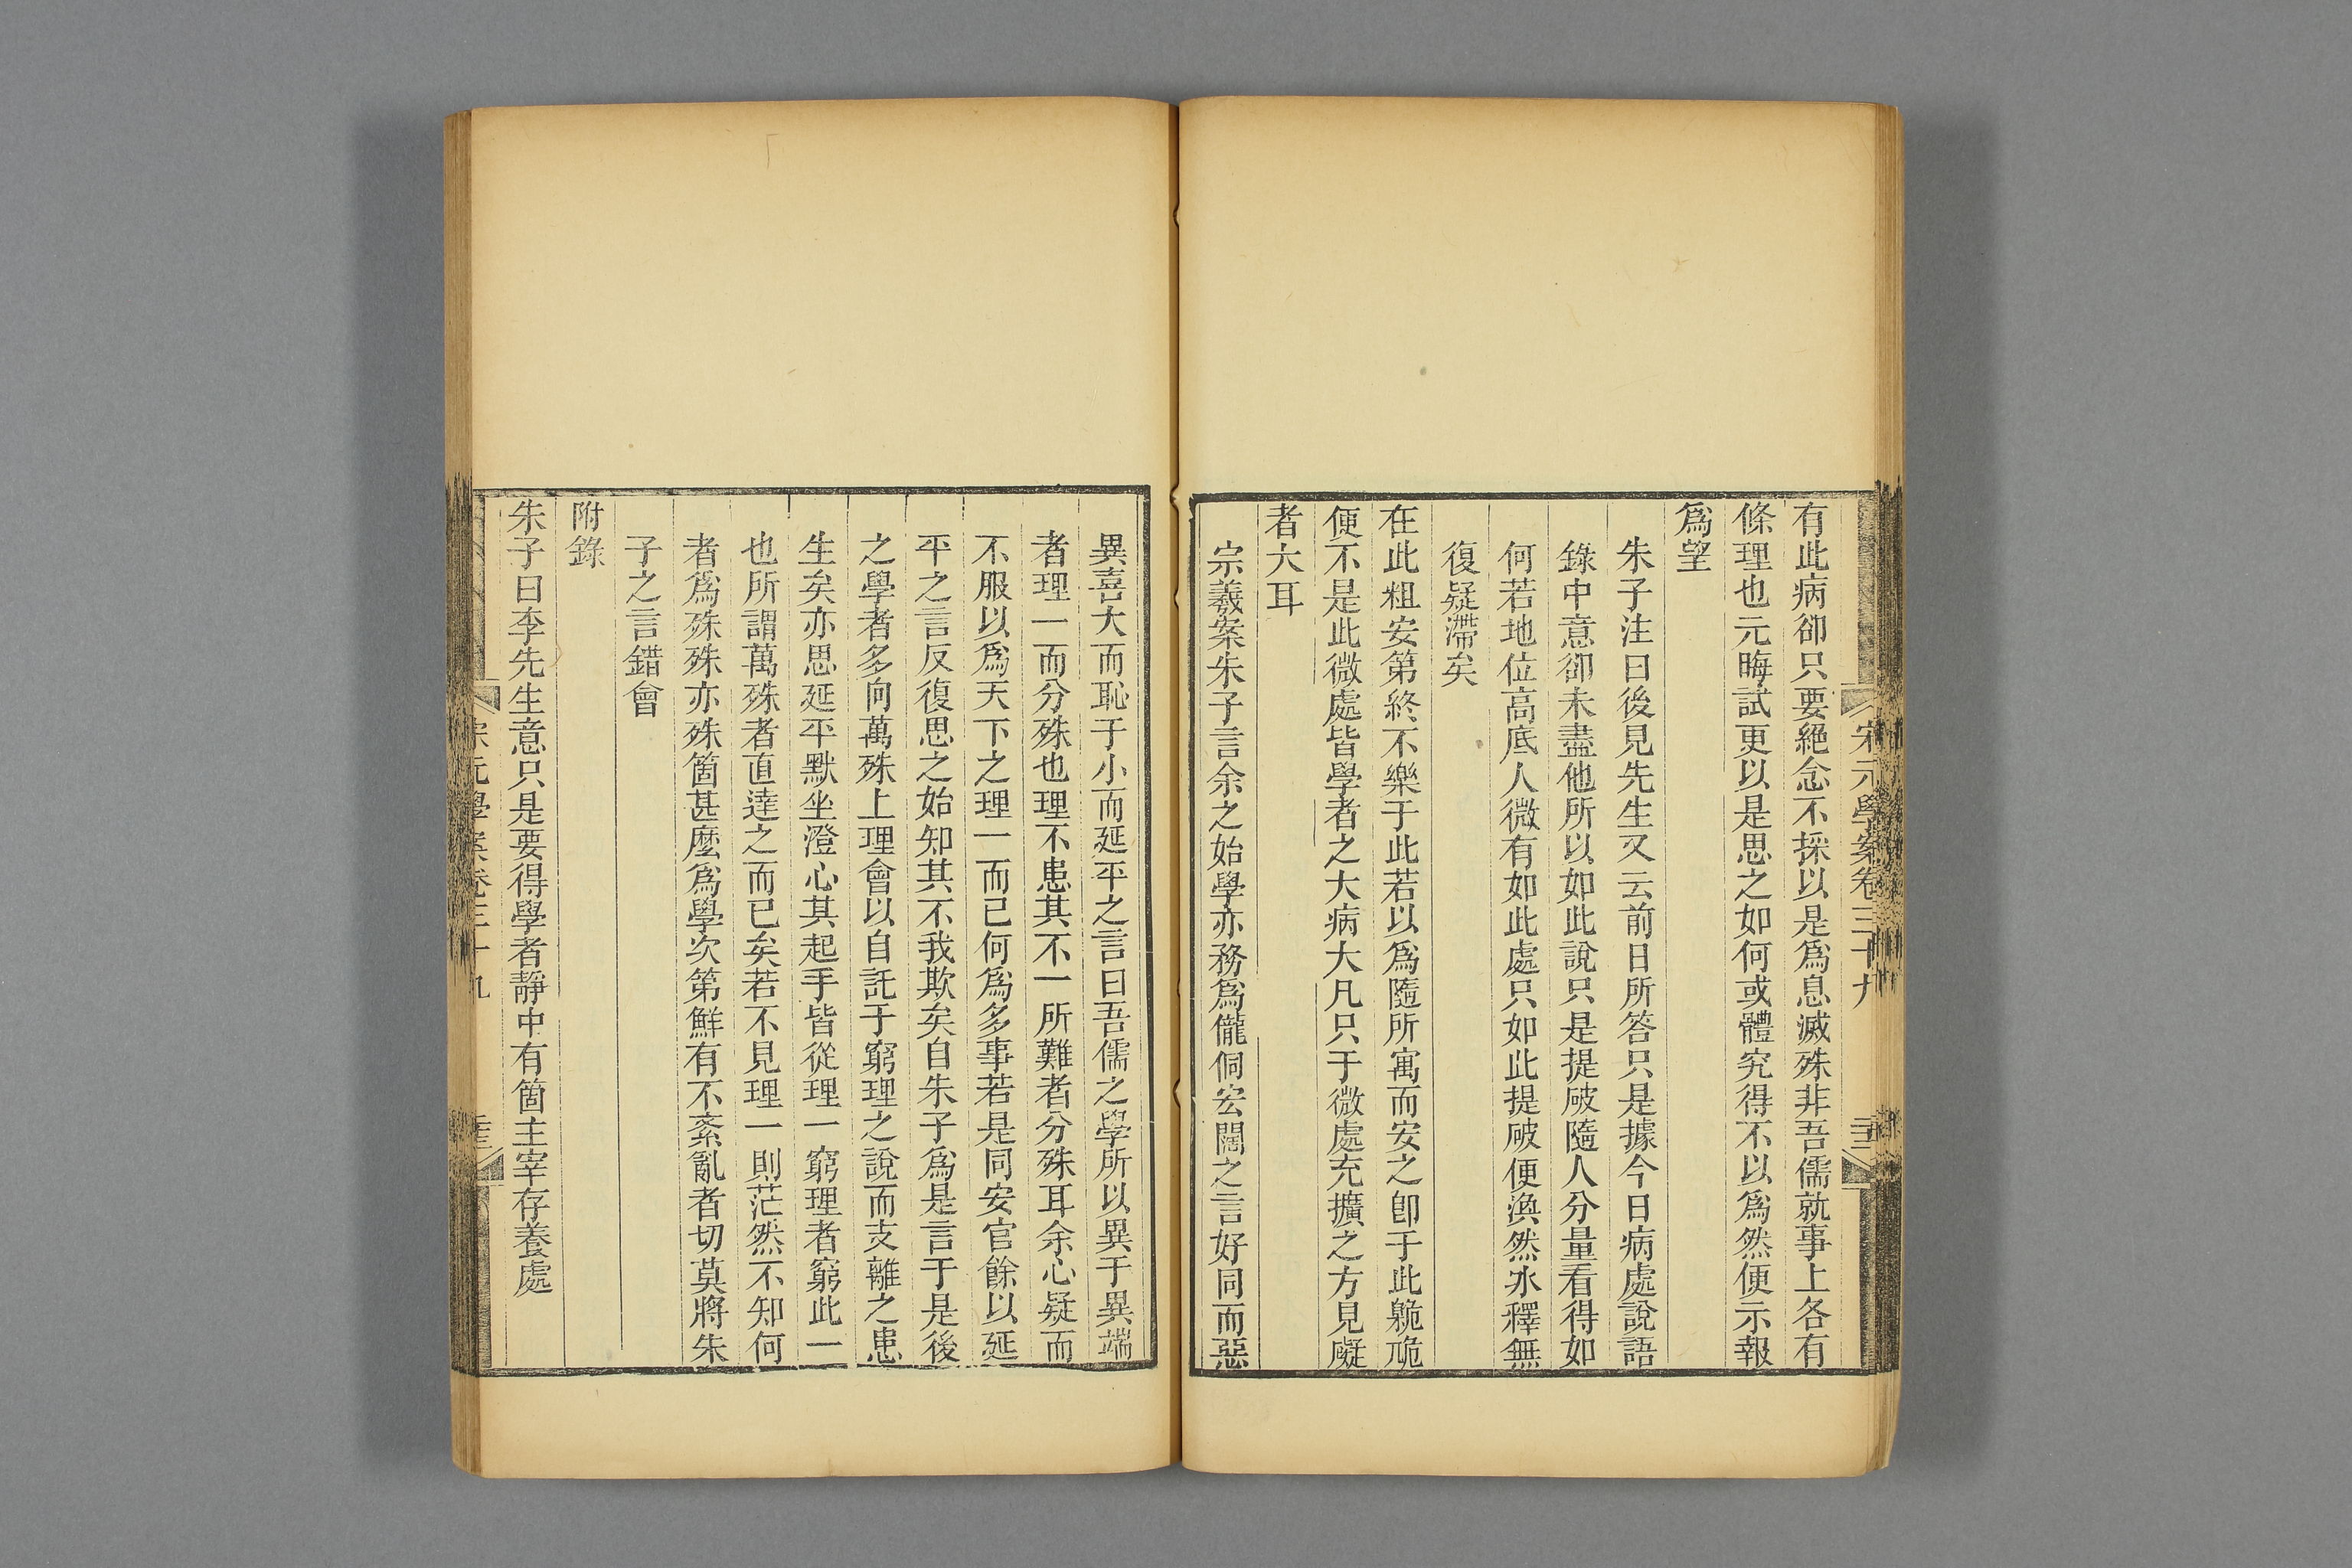 宋元學案卷三十九
有此病卻只要絕念不採以是爲息滅殊非吾儒就事上各有
條理也元晦試更以是思之如何或體究得不以爲然便示報
爲望
朱子注曰後見先生又云前日所答只是據今日病處說語
錄中意卻未盡他所以如此說只是提破隨人分量看得如
何若地位高底人微有如此處只如此提破便渙然冰釋無
復疑滯矣
在此粗安第終不樂于此若以爲隨所寓而安之卽于此臲卼
便不是此微處皆學者之大病大凡只于微處充擴之方見礙
者大耳
宗羲案朱子言余之始學亦務爲儱侗宏闊之言好同而惡
異喜大而恥于小而延平之言曰吾儒之學所以異于異端
者理一而分殊也理不患其不一所難者分殊耳余心疑而
不服以爲天下之理一而已何爲多事若是同安官餘以延
平之言反復思之始知其不我欺矣自朱子爲是言于是後
之學者多向萬殊上理會以自託于窮理之說而支離之患
生矣亦思延平默坐澄心其起手皆從理一窮理者窮此一
也所謂萬殊者直達之而已矣若不見理一則茫然不知何
者爲殊殊亦殊箇甚麽爲學次第鮮有不紊亂者切莫將朱
子之言錯會
附錄
朱子曰李先生意只是要得學者靜中有箇主宰存養處
宋元學案卷三十九